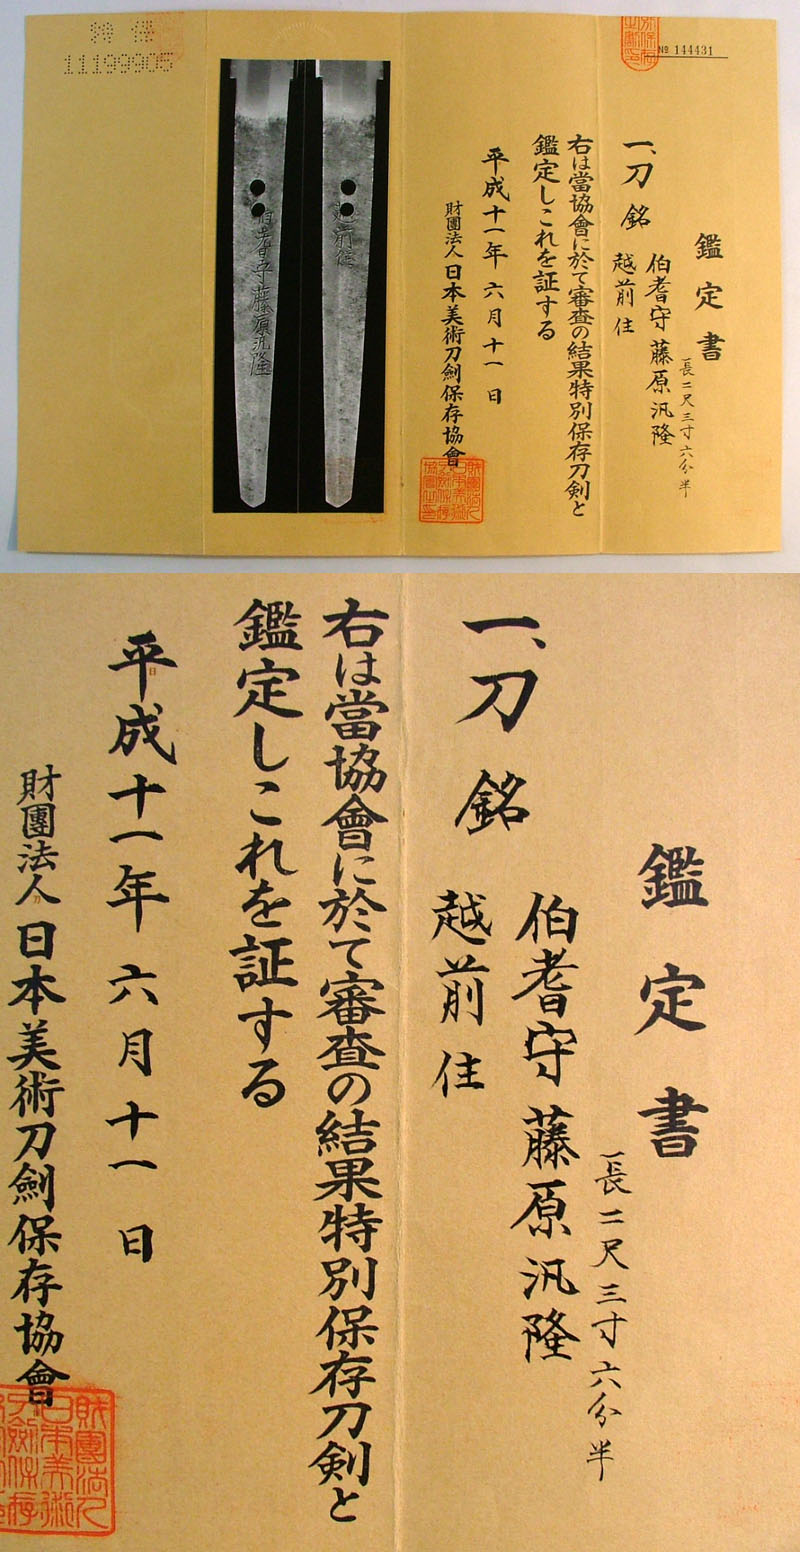 特保
11199905
№ 144431
鑑定書
一、刀 銘 伯耆守藤原汎隆
越前住
長二尺三寸六分半
右は當協會に於て審査の結果特別保存刀剣と
鑑定しこれを証する
平成十一年六月十一日
財團法人日本美術刀劍保存協會
越前住
伯耆守藤原汎隆
鑑定書
一、刀 銘 伯耆守藤原汎隆
越前住
長二尺三寸六分半
右は當協會に於て審査の結果特別保存刀剣と
鑑定しこれを証する
平成十一年六月十一日
財團法人日本美術刀劍保存協會